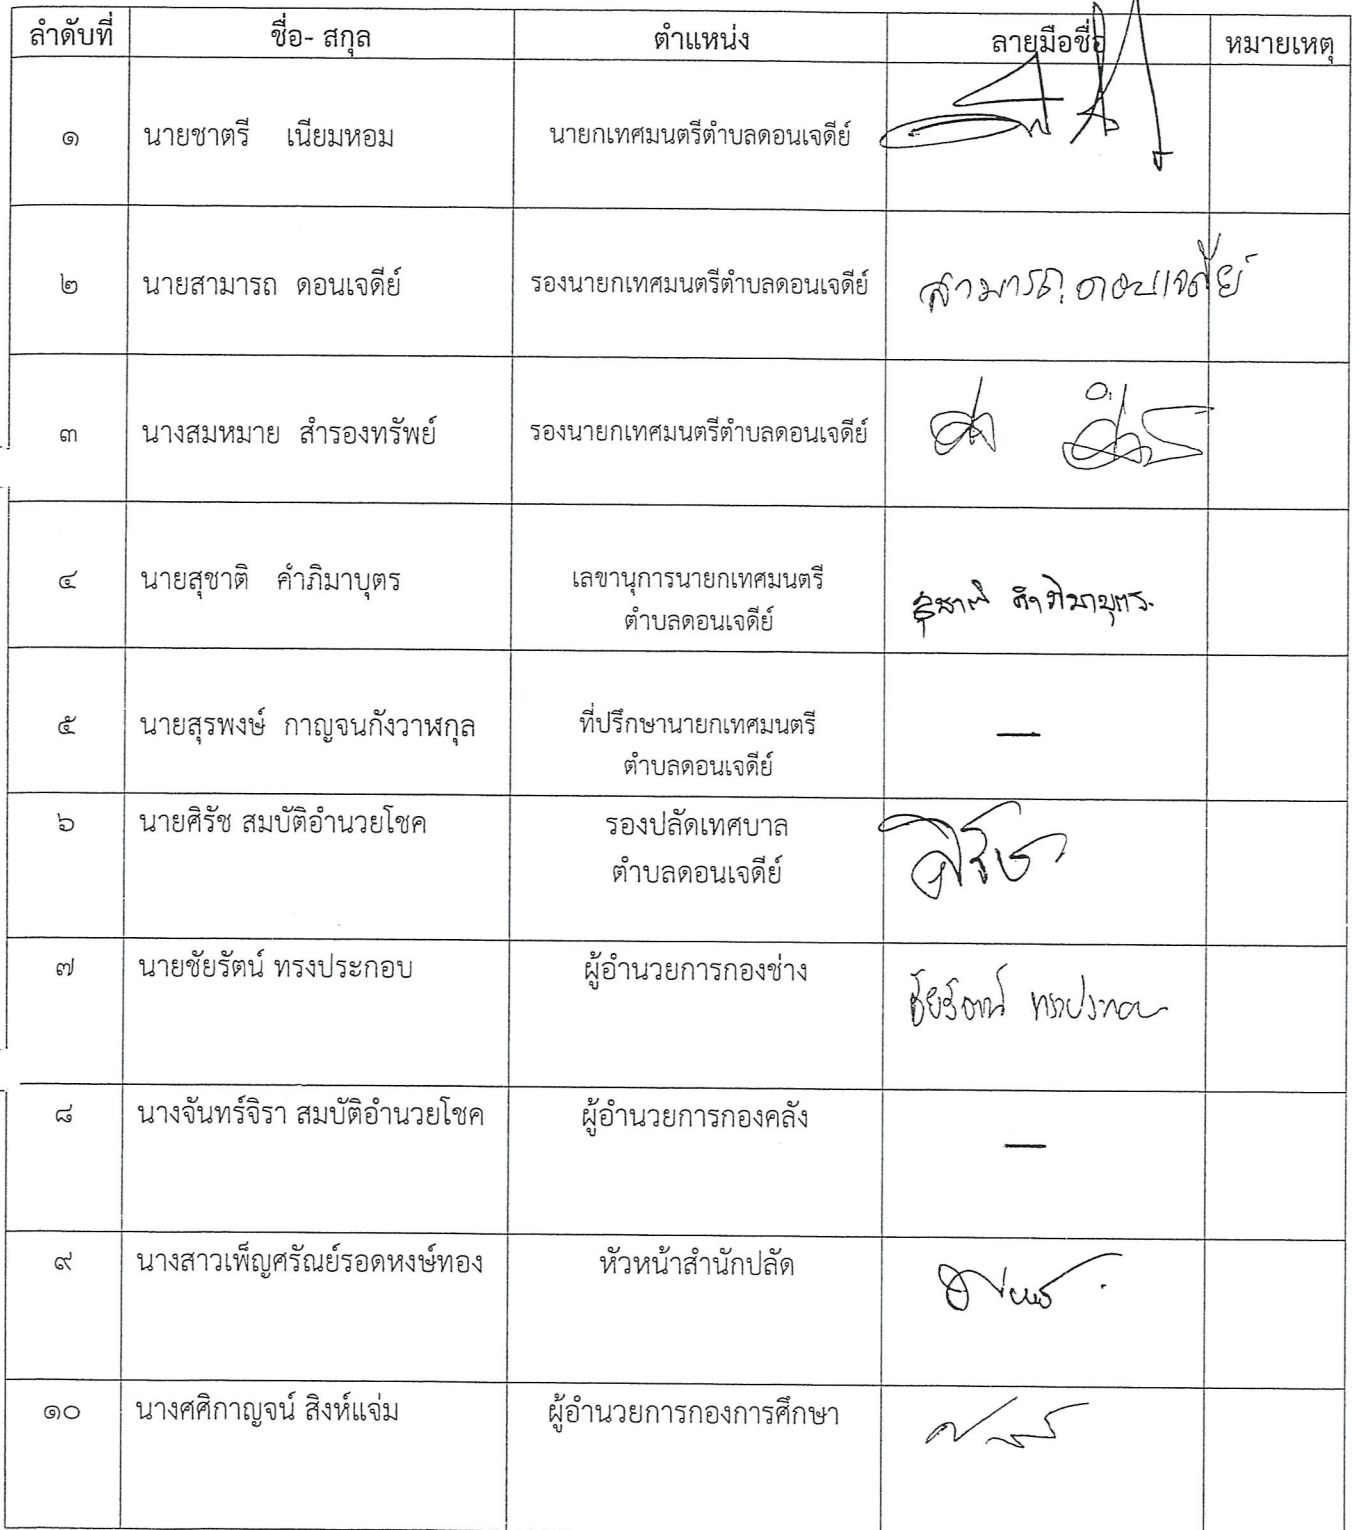 ลำดับที่ ชื่อ- สกุล ตำแหน่ง ลายมือชื่อ หมายเหตุ
๑ นายชาตรี เนียมหอม นายกเทศมนตรีตำบลดอนเจดีย์
๒ นายสามารถ ดอนเจดีย์ รองนายกเทศมนตรีตำบลดอนเจดีย์ สามารถ ดอนเจดีย์
๓ นางสมหมาย สำรองทรัพย์ รองนายกเทศมนตรีตำบลดอนเจดีย์
๔ นายสุชาติ คำภิมาบุตร เลขานุการนายกเทศมนตรี
ตำบลดอนเจดีย์ สุชาติ คำภิมาบุตร
๕ นายสุรพงษ์ กาญจนกังวาฬกุล ที่ปรึกษานายกเทศมนตรี —
ตำบลดอนเจดีย์
๖ นายศิรัช สมบัติอำนวยโชค รองปลัดเทศบาล
ตำบลดอนเจดีย์
๗ นายชัยรัตน์ ทรงประกอบ ผู้อำนวยการกองช่าง ชัยรัตน์ ทรงประกอบ
๘ นางจันทร์จิรา สมบัติอำนวยโชค ผู้อำนวยการกองคลัง —
๙ นางสาวเพ็ญศรัณย์รอดหงษ์ทอง หัวหน้าสำนักปลัด
๑๐ นางศศิกาญจน์ สิงห์แจ่ม ผู้อำนวยการกองการศึกษา